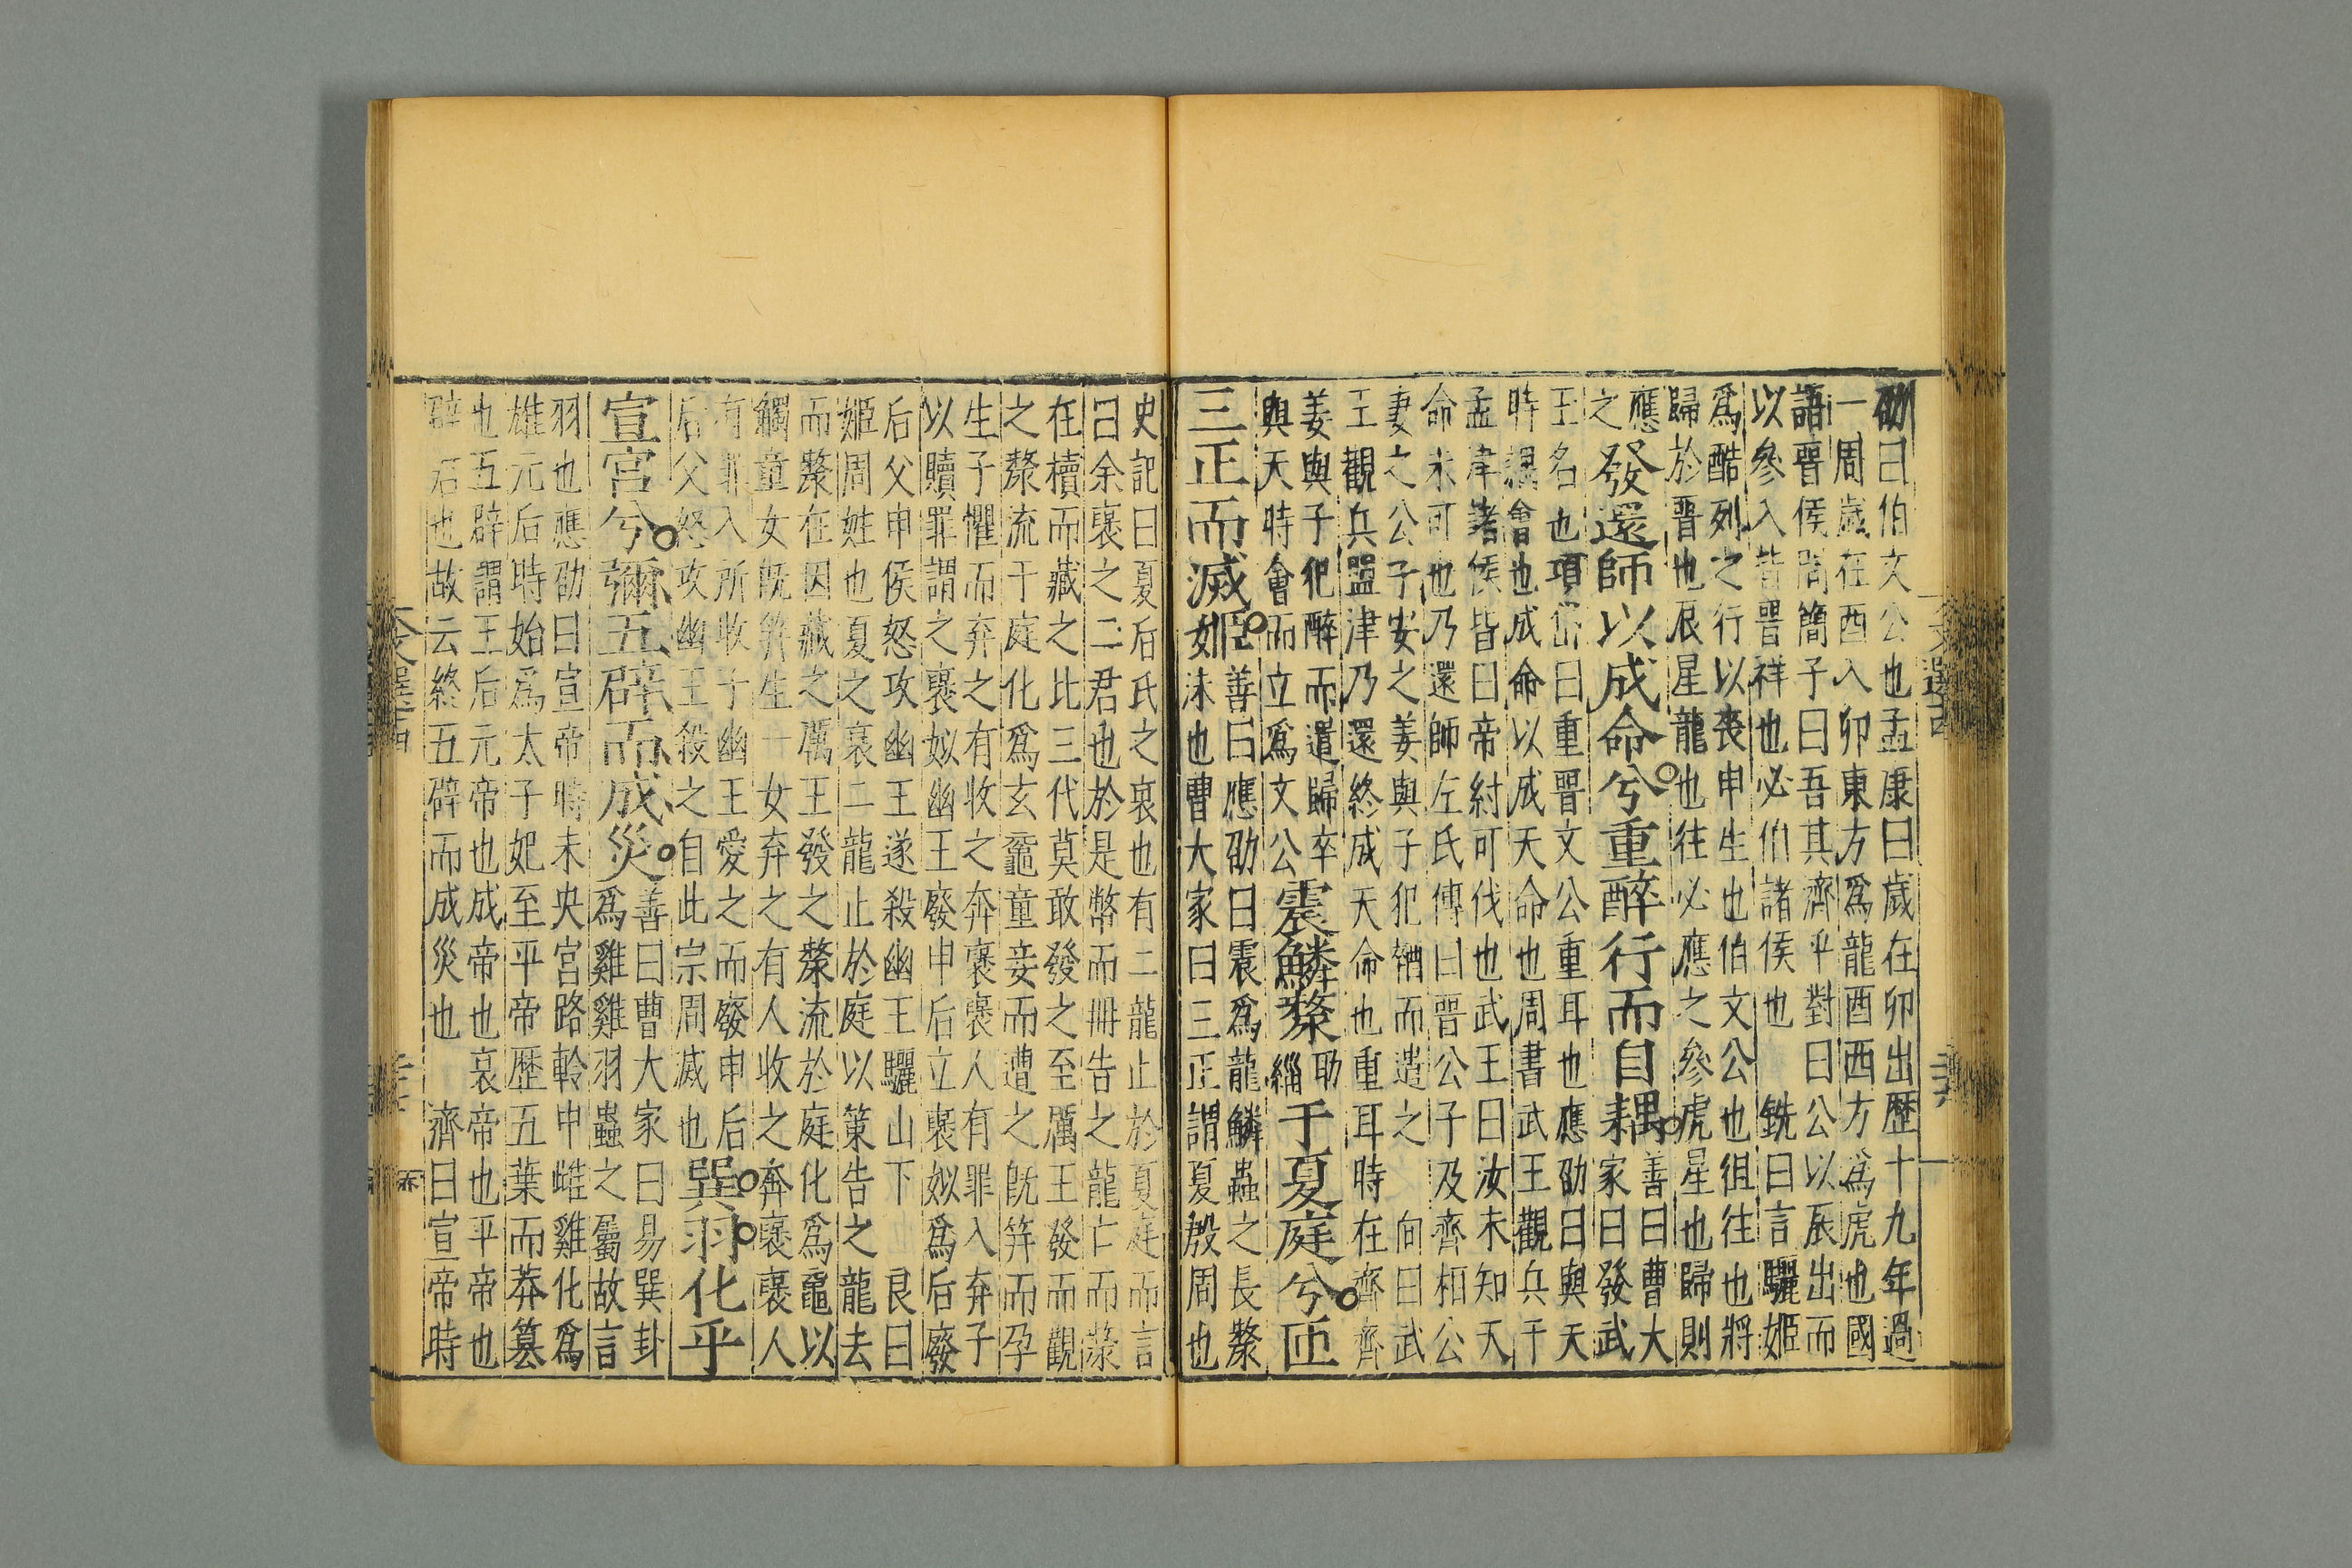 劭曰伯文公也孟康曰歲在卯出歷十九年過
一周歲在酉入卯東方爲龍酉西方爲虎也國
語晉侯問簡子曰吾其濟乎對曰公以辰出而
以參入皆晉祥也必伯諸侯也 銑曰言驪姬
爲酷列之行以喪申生也伯文公也徂往也將
歸於晉也辰星龍也往必應之參虎星也歸則
應之發還師以成命兮重醉行而自耦善曰曹大家曰發武
王名也項岱曰重晉文公重耳也應劭曰與天
時偶會也成命以成天命也周書武王觀兵于
孟津諸侯皆曰帝紂可伐也武王曰汝未知天
命未可也乃還師左氏傳曰晉公子及齊桓公
妻之公子安之姜與子犯謀而遣之 向曰武
王觀兵盟津乃還終成天命也重耳時在齊齊
姜與子犯醉而遣歸卒與天時會而立爲文公震鱗漦助緇于夏庭兮匝
三正而滅姬善曰應劭曰震爲龍鱗蟲之長漦沫也曹大家曰三正謂夏殷周也
史記曰夏后氏之衰也有二龍止於夏庭而言
曰余褒之二君也於是幣而冊告之龍亡而漦
在櫝而藏之比三代莫敢發之至厲王發而觀
之漦流于庭化爲玄黿童妾而遭之旣笄而孕
生子懼而弃之有收之奔褒褒人有罪入弃子
以贖罪謂之褒姒幽王廢申后立褒姒爲后廢
后父申侯怒攻幽王遂殺幽王驪山下 良曰
姬周姓也夏之衰二龍止於庭以策告之龍去
而漦在因藏之厲王發之漦流於庭化爲黿以
觸童女旣笄生一女弃之有人收之奔褒褒人
有罪入所收子幽王愛之而廢申后
后父怒攻幽王殺之自此宗周滅也巽羽化乎
宣宮兮彌五辟而成災善曰曹大家曰易巽卦爲雞雞羽蟲之屬故言
羽也應劭曰宣帝時未央宮路軨中雌雞化爲
雄元后時始爲太子妃至平帝歷五葉而莽篡
也五辟謂王后元帝也成帝也哀帝也平帝也
辟君也故云終五辟而成災也 濟曰宣帝時